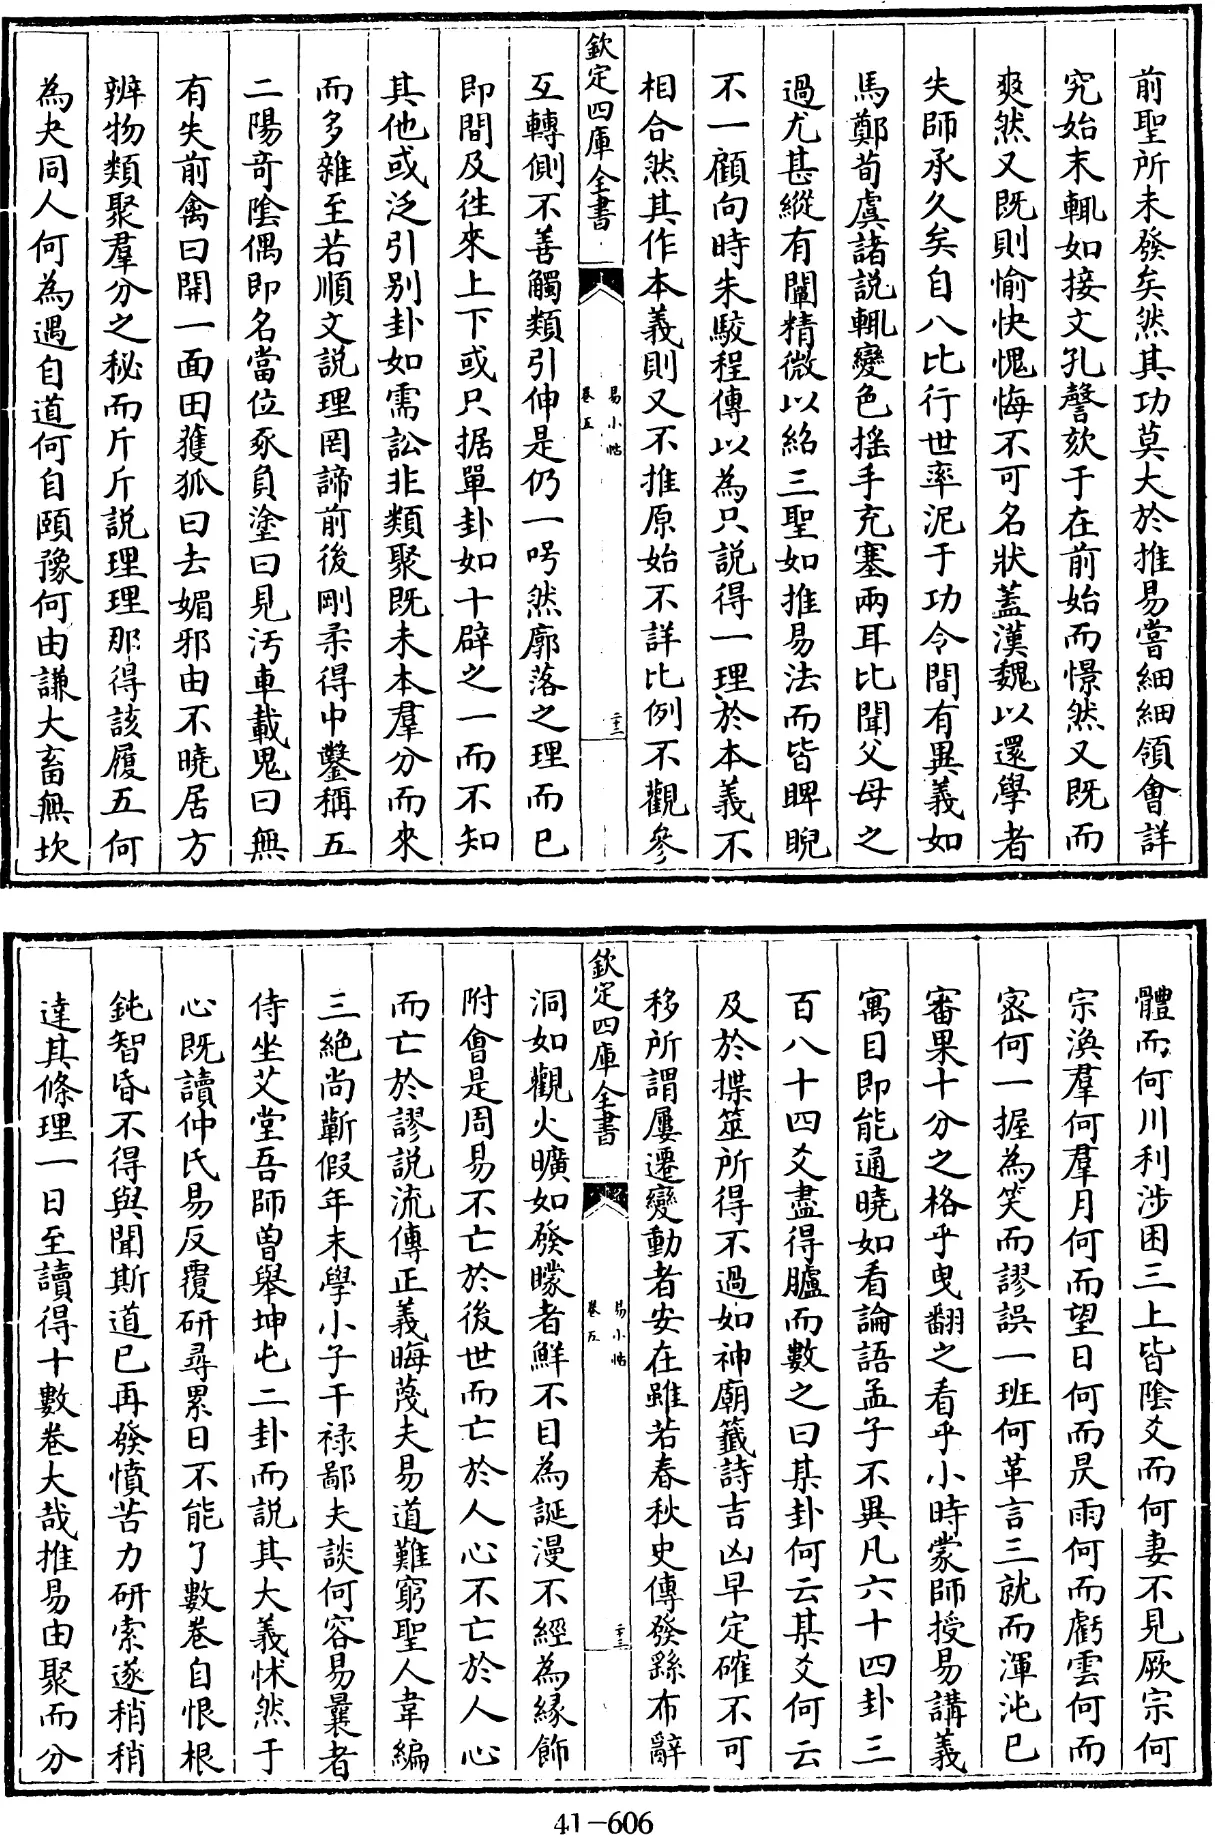 前聖所未發矣然其功莫大於推易嘗細細領會詳
究始末輒如接文孔謦欬于在前始而憬然又既而
爽然又既則愉快愧悔不可名狀蓋漢魏以還學者
失師承久矣自八比行世率泥于功令間有異義如
馬鄭荀虞諸説輒變色揺手充塞兩耳比聞父母之
過尤甚縱有闡精微以紹三聖如推易法而皆睥睨
不一顧向時朱駮程傳以為只説得一理於本義不
相合然其作本義則又不推原始不詳比例不觀參
欽定四庫全書
易小帖
卷五
二十三
互轉側不善觸類引伸是仍一呺然廓落之理而已
即間及徃來上下或只据單卦如十辟之一而不知
其他或泛引别卦如需訟非類聚既未本羣分而來
而多雜至若順文説理罔諦前後剛柔得中鑿稱五
二陽竒陰偶即名當位豕負塗曰見汚車載鬼曰無
有失前禽曰開一面田獲狐曰去媚邪由不曉居方
辨物類聚羣分之秘而斤斤説理理那得該履五何
為夬同人何為遇自道何自頤豫何由謙大畜無坎
體而何川利涉困三上皆陰爻而何妻不見厥宗何
宗渙羣何羣月何而望日何而昃雨何而虧雲何而
宻何一握為笑而謬誤一班何革言三就而渾沌已
審果十分之格乎曳翻之看乎小時蒙師授易講義
寓目即能通曉如看論語孟子不異凡六十四卦三
百八十四爻盡得臚而數之曰某卦何云某爻何云
及於揲筮所得不過如神廟籤詩吉凶早定確不可
移所謂屢遷變動者安在雖若春秋史傳發繇布辭
欽定四庫全書
易小帖
卷五
二十三
洞如觀火曠如發矇者鮮不目為誕漫不經為縁飾
附會是周易不亡於後世而亡於人心不亡於人心
而亡於謬説流傳正義晦蔑夫易道難窮聖人韋編
三絶尚蘄假年末學小子干禄鄙夫談何容易曩者
侍坐艾堂吾師曽舉坤屯二卦而説其大義怵然于
心既讀仲氏易反覆研尋累日不能了數卷自恨根
鈍智昏不得與聞斯道已再發憤苦力研索遂稍稍
達其條理一日至讀得十數卷大哉推易由聚而分
41-606